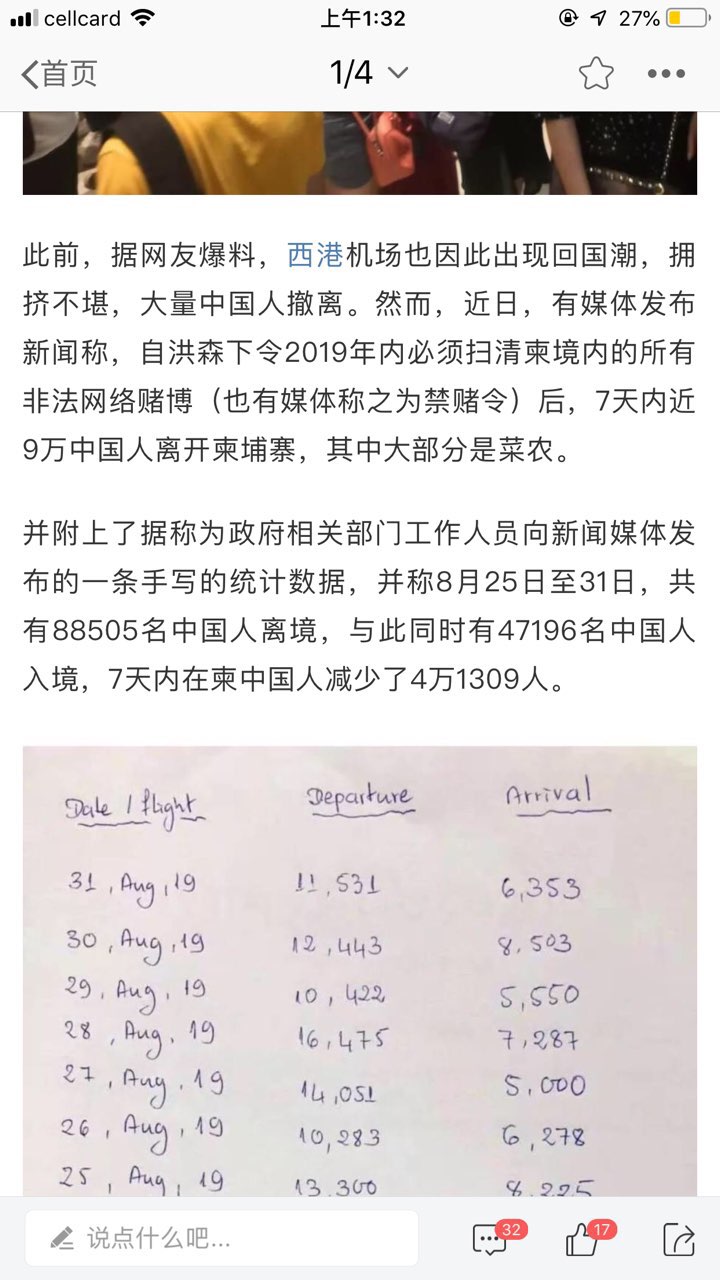 cellcard 上午1:32 27%
首页 1/4
此前，据网友爆料，西港机场也因此出现回国潮，拥
挤不堪，大量中国人撤离。然而，近日，有媒体发布
新闻称，自洪森下令2019年内必须扫清柬境内的所有
非法网络赌博（也有媒体称之为禁赌令）后，7天内近
9万中国人离开柬埔寨，其中大部分是菜农。
并附上了据称为政府相关部门工作人员向新闻媒体发
布的一条手写的统计数据，并称8月25日至31日，共
有88505名中国人离境，与此同时有47196名中国人
入境，7天内在柬中国人减少了4万1309人。
Date / flight Departure Arrival
31, Aug, 19 11,531 6,353
30, Aug, 19 12,443 8.503
29, Aug, 19 10, 422 5,550
28, Aug, 19 16,475 7,287
27, Aug, 19 14,051 5,000
26, Aug, 19 10,283 6,278
25, Aug, 19 13.300 8.225
说点什么吧... 32 17